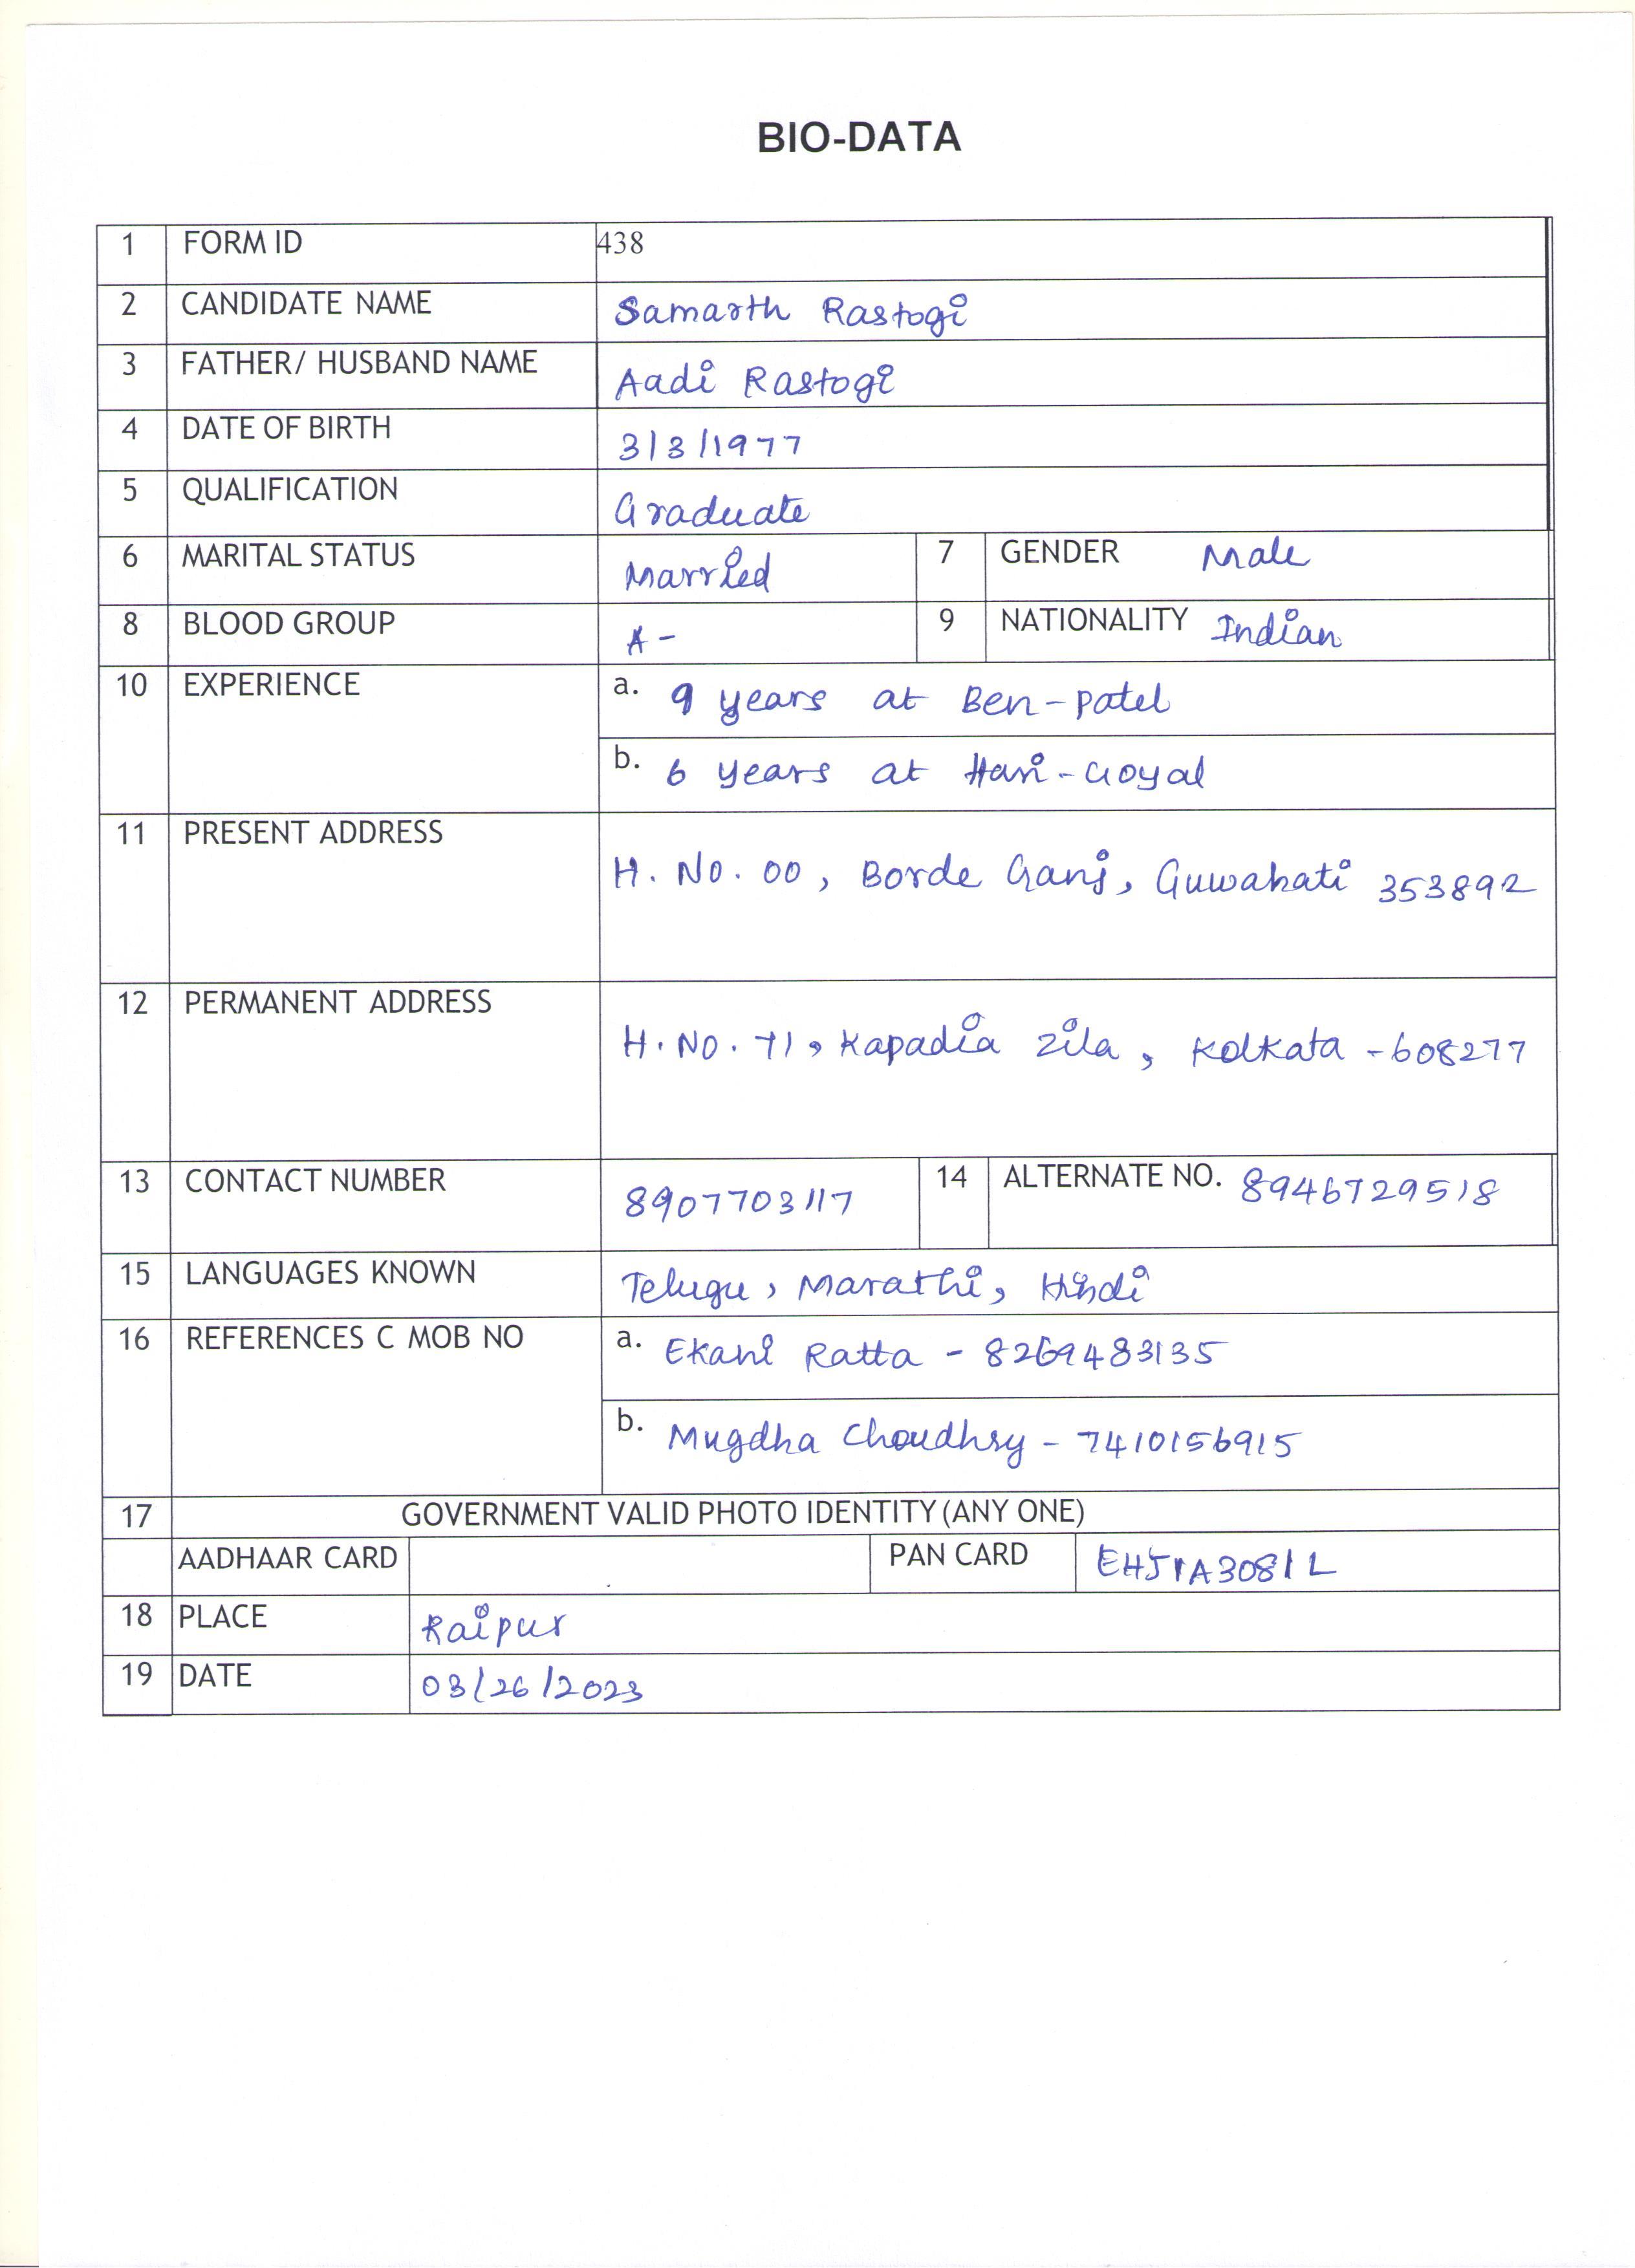 BIO-DATA
1 FORM ID 438
2 CANDIDATE NAME Samarth Rastogi
3 FATHER/ HUSBAND NAME Aadi Rastogi
4 DATE OF BIRTH 3/3/1977
5 QUALIFICATION Graduate
6 MARITAL STATUS Married 7 GENDER Male
8 BLOOD GROUP A- 9 NATIONALITY Indian
10 EXPERIENCE a. 9 years at Ben-Patel
b. 6 years at Hari-Goyal
11 PRESENT ADDRESS H. No. 00, Borde Ganj, Guwahati 353892
12 PERMANENT ADDRESS H. No. 71, Kapadia Zila, Kolkata - 608277
13 CONTACT NUMBER 8907703117 14 ALTERNATE NO. 8946729518
15 LANGUAGES KNOWN Telugu, Marathi, Hindi
16 REFERENCES C MOB NO a. Ekani Ratta - 8269483135
b. Mugdha Choudhry - 7410156915
17 GOVERNMENT VALID PHOTO IDENTITY (ANY ONE)
AADHAAR CARD PAN CARD
18 PLACE Raipur
19 DATE 03/26/2023